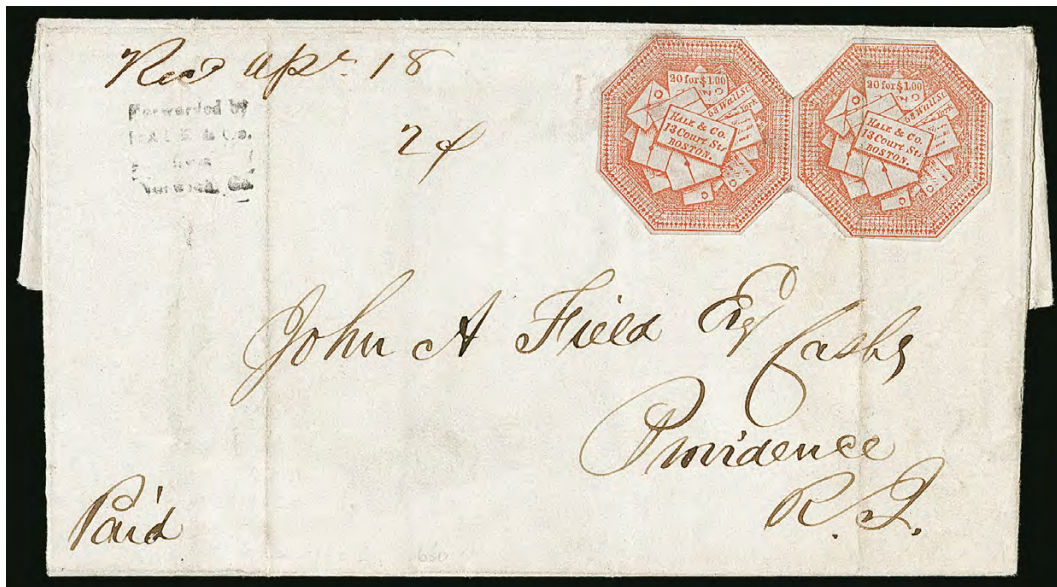 Recd Apr 18
Forwarded by
HALE & Co.
from
Norwich, Ct.
2d
20 for $1.00
58 Wall St.
York
HALE & Co.
13 Court St.
BOSTON.
20 for $1.00
58 Wall St.
York
HALE & Co.
13 Court St.
BOSTON.
John A Field Esq Cashr
Providence
R. I.
Paid